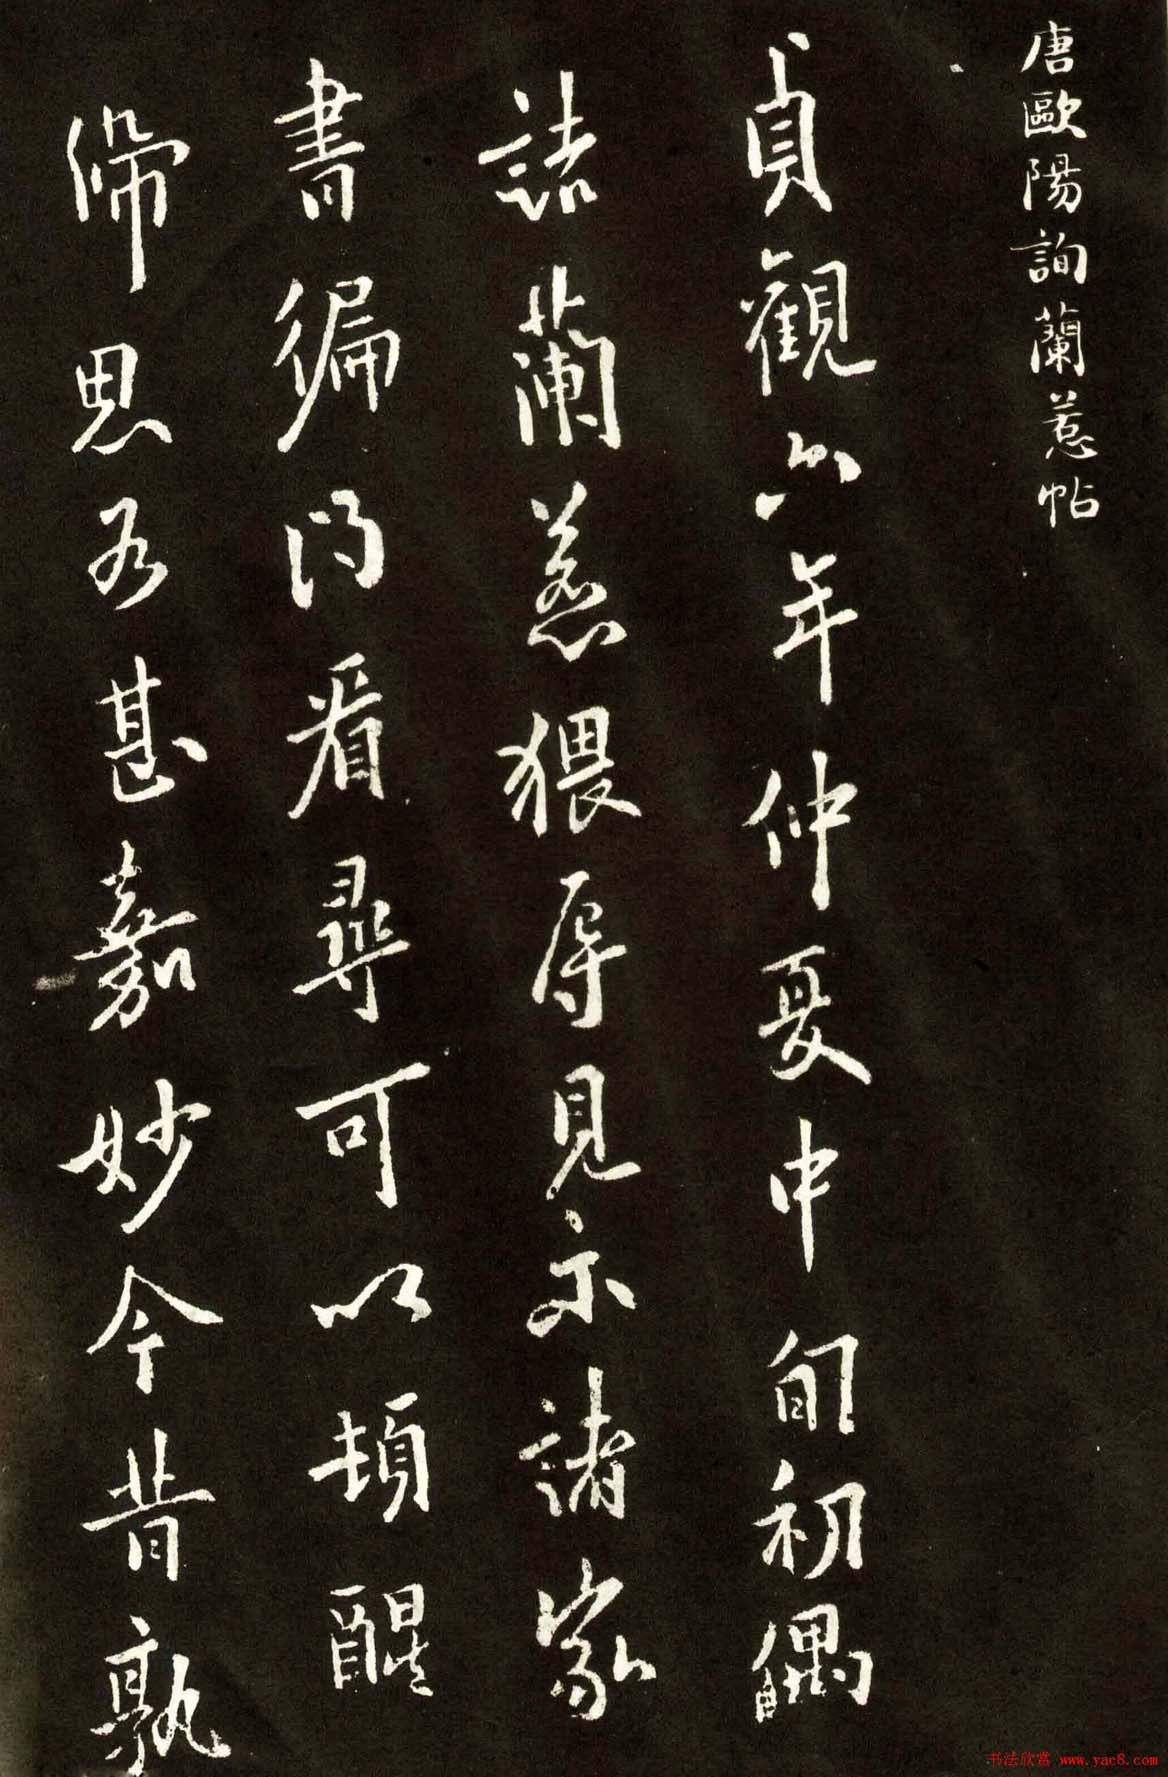 唐歐陽詢蘭惹帖
貞觀六年仲夏中旬初偶
詰蘭惹猥辱見示諸家
書徧得看尋可以頓醒
歸思为甚嘉妙今昔孰
书法欣赏 www.yac8.com